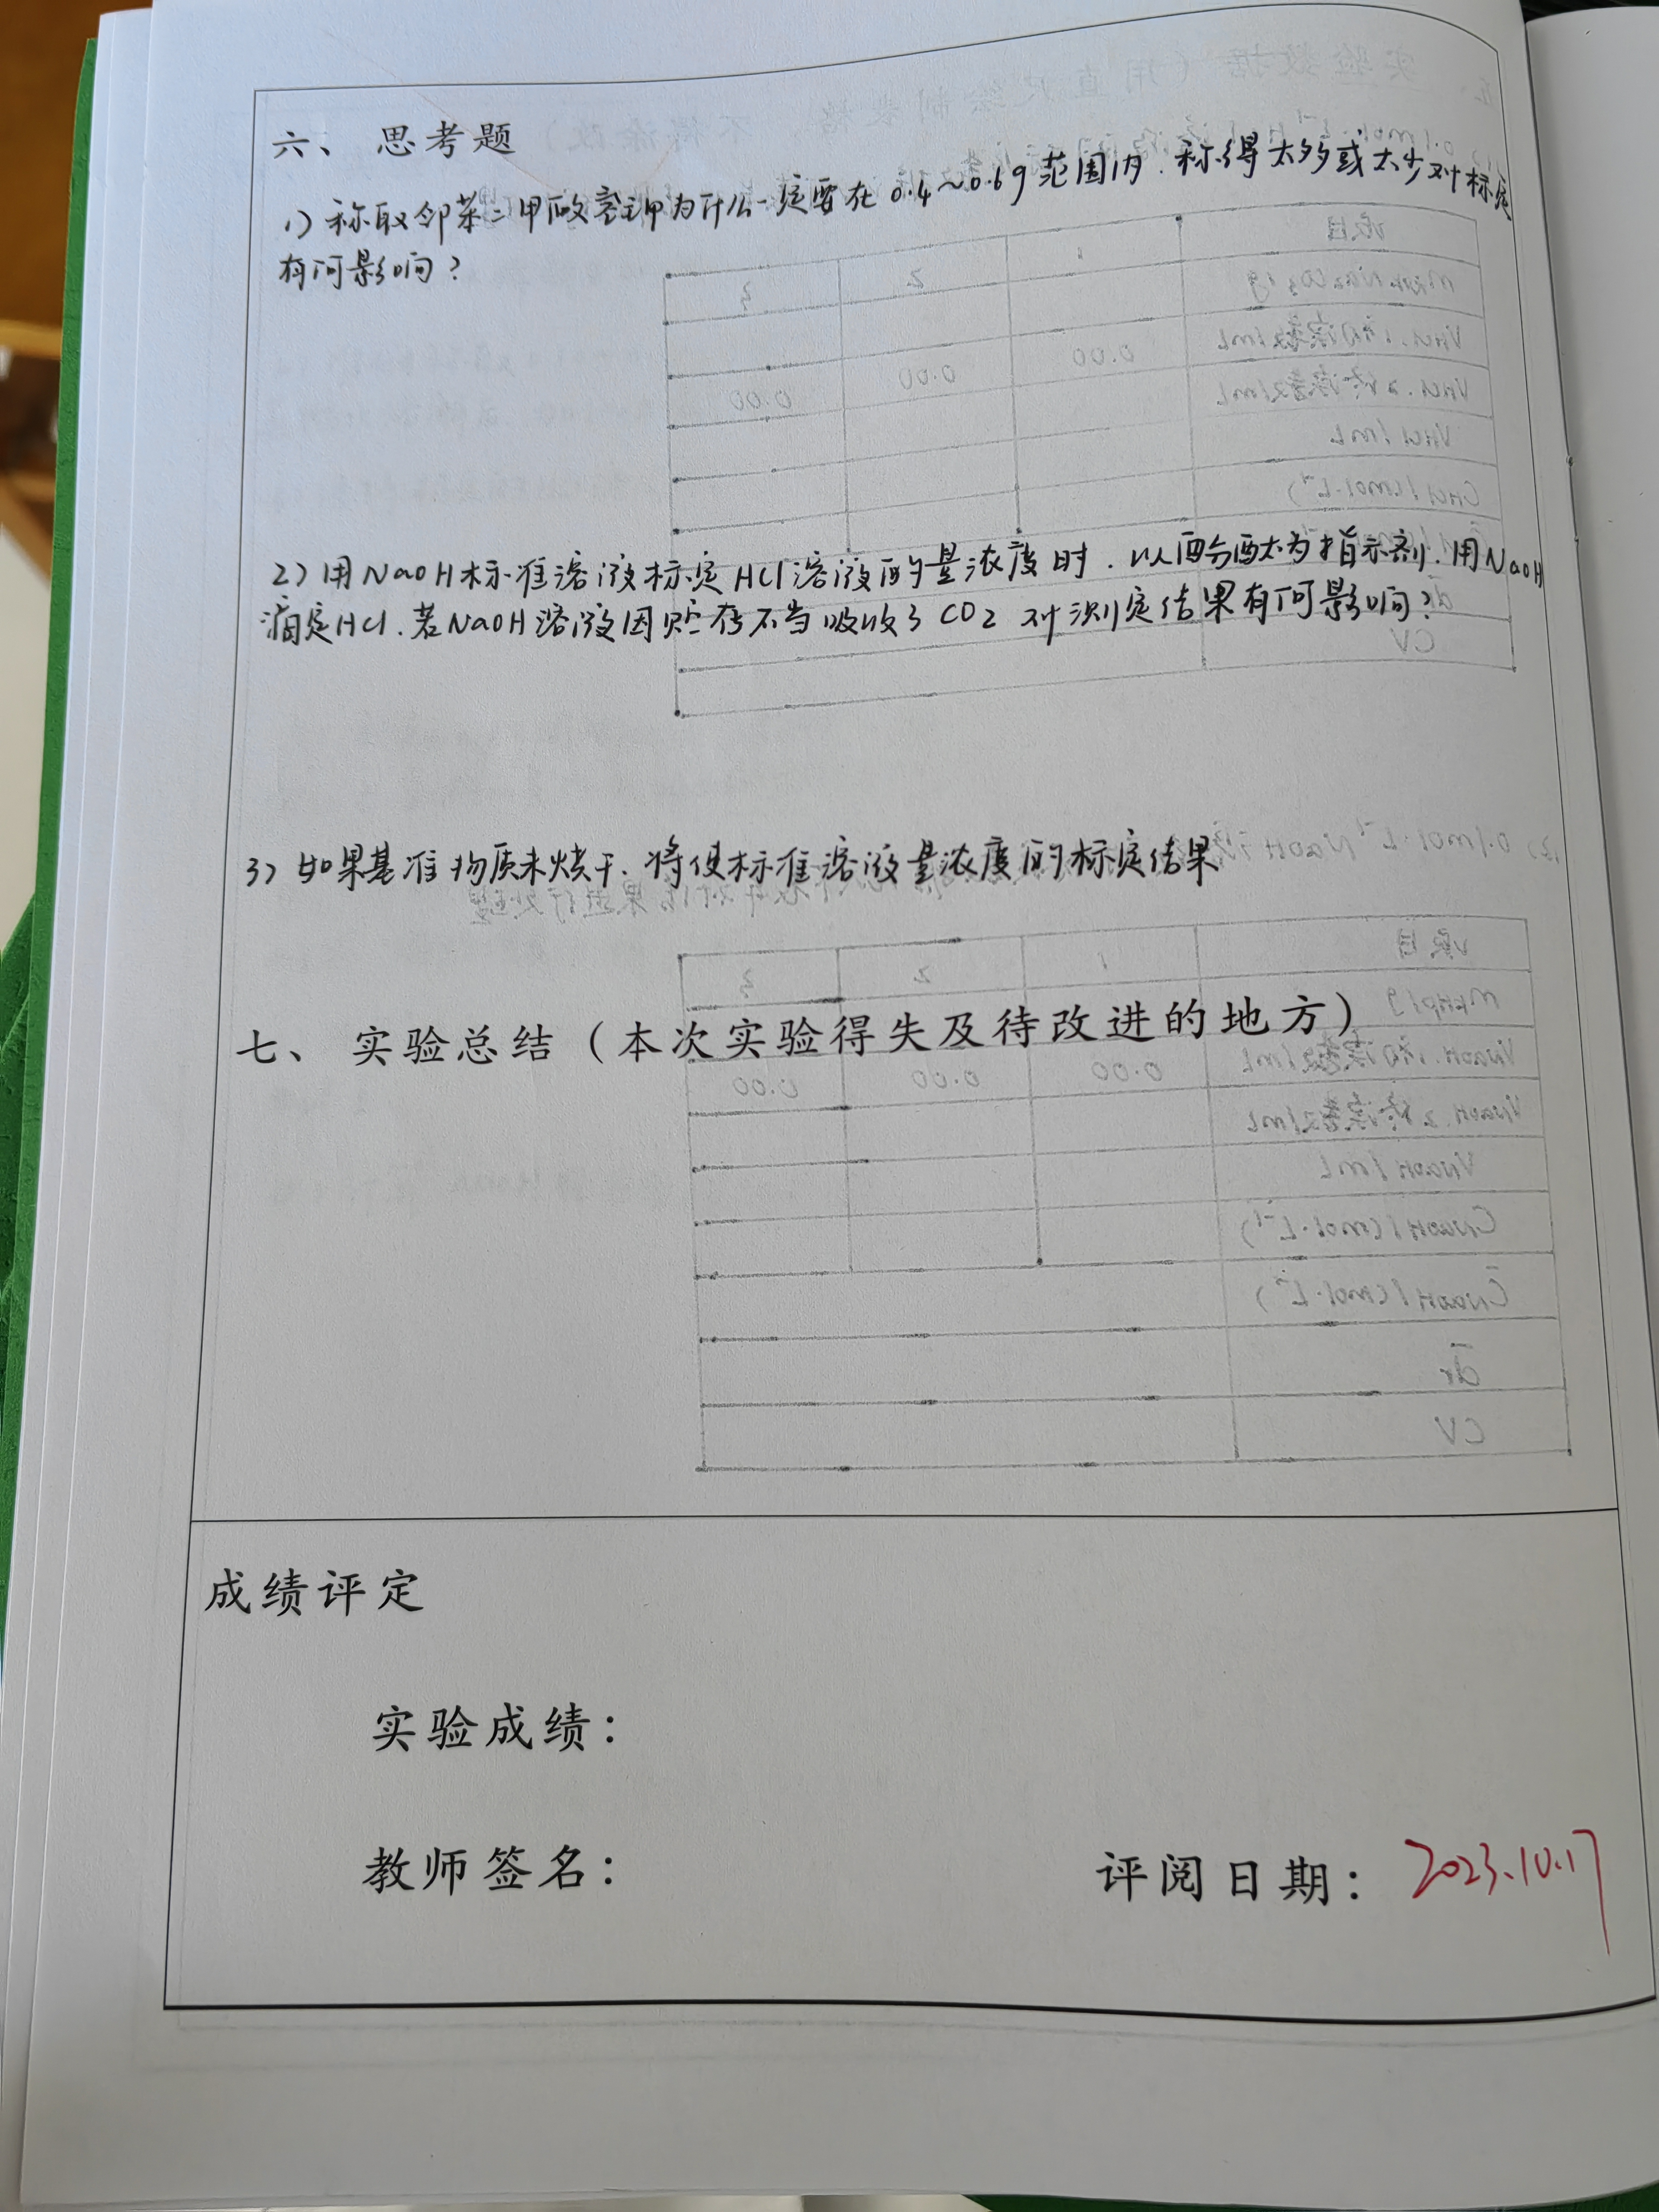 六、思考题
1) 称取邻苯二甲酸氢钾为什么一定要在0.4~0.6g范围内.称得太多或太少对标定
有何影响?
2) 用NaOH标准溶液标定HCl溶液的量浓度时.以酚酞为指示剂.用NaOH
滴定HCl.若NaOH溶液因贮存不当吸收了CO2 对测定结果有何影响?
3) 如果基准物质未烘干.将使标准溶液量浓度的标定结果
七、实验总结(本次实验得失及待改进的地方)
成绩评定
实验成绩:
教师签名:
评阅日期: 2023.10.17